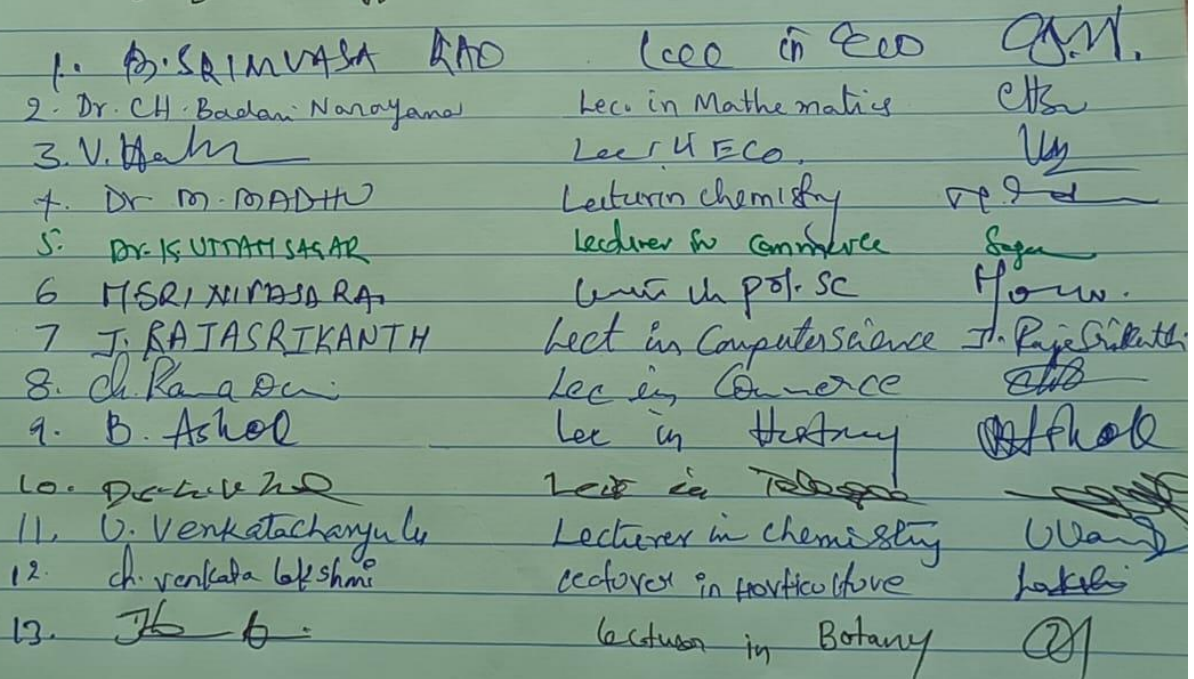 1. B. SRINIVASA RAO Lec in Eco
2. Dr. CH. Badari Narayana Lec. in Mathematics
3. V. Lec in ECO.
4. Dr M. MADHU Lecturin chemistry
5. Dr. K. UTTAM SAGAR Lecturer in Commerce Sagar
6 M SRINIVASA RAO in pol. SC
7 J. RAJASRIKANTH Lect in Computerscience J. RajaSrikanth
8. Ch. Rama Devi Lec in Commerce
9. B. Ashok Lec in History Ashok
10. Lect in Telugu
11. V. Venkatacharyulu Lecturer in chemistry
12. ch. venkata lakshmi lecturer in Horticulture Lakshmi
13. lecturer in Botany